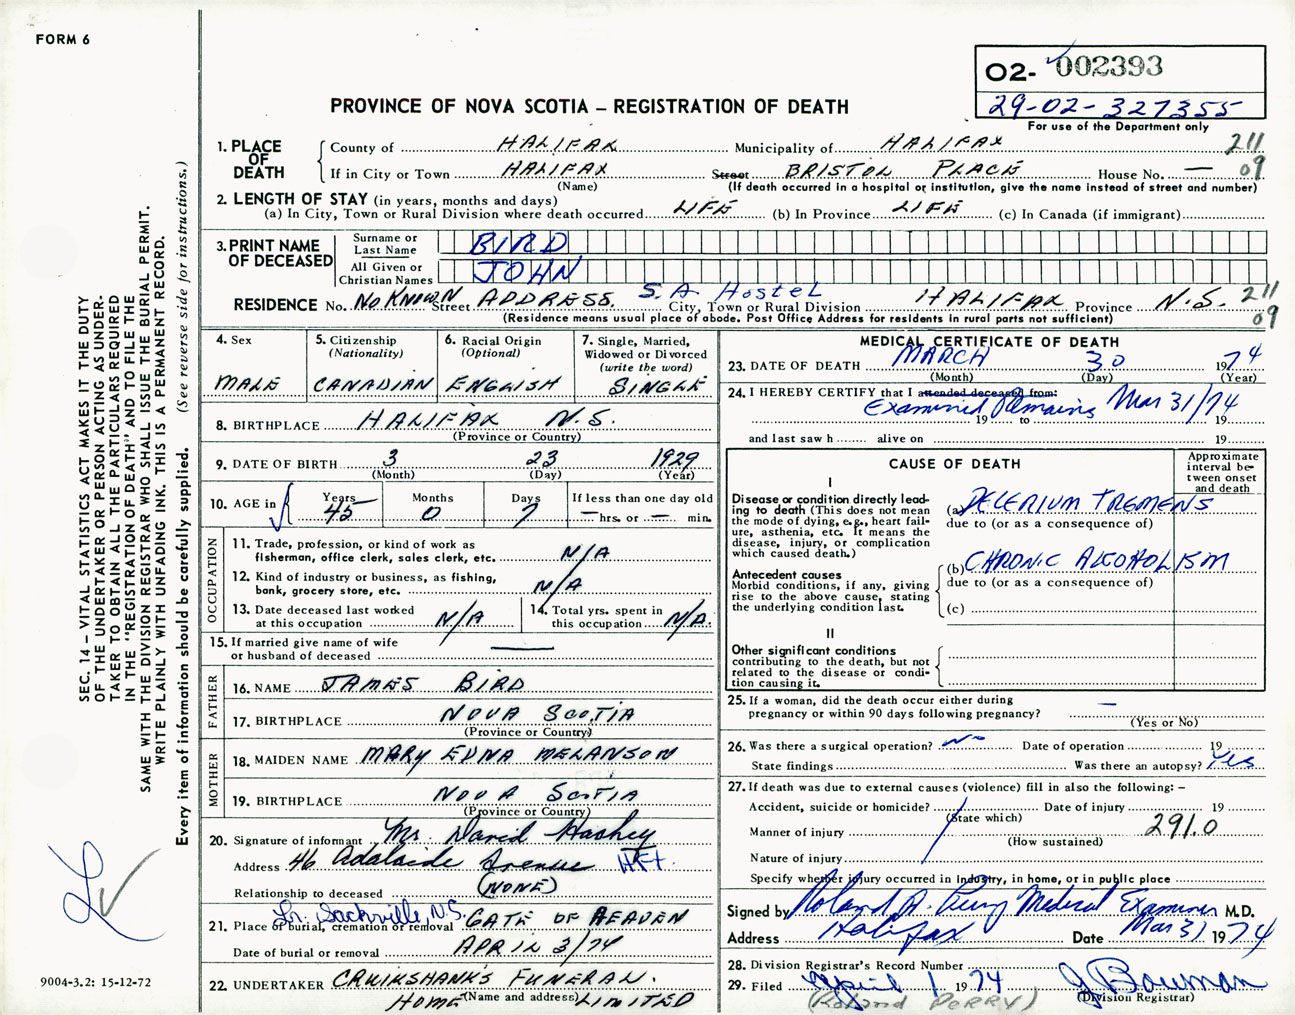 FORM 6
O2- 002393
29-02-327355
For use of the Department only
PROVINCE OF NOVA SCOTIA – REGISTRATION OF DEATH
1. PLACE OF DEATH
County of HALIFAX Municipality of HALIFAX 211
If in City or Town HALIFAX Street BRISTOL PLACE House No. — 09
(Name) (If death occurred in a hospital or institution, give the name instead of street and number)
2. LENGTH OF STAY (in years, months and days)
(a) In City, Town or Rural Division where death occurred LIFE (b) In Province LIFE (c) In Canada (if immigrant)
3. PRINT NAME OF DECEASED
Surname or Last Name BIRD
All Given or Christian Names JOHN
RESIDENCE No. NO KNOWN Street ADDRESS. S.A Hostel City, Town or Rural Division HALIFAX Province N.S. 211
09
(Residence means usual place of abode. Post Office Address for residents in rural parts not sufficient)
4. Sex MALE
5. Citizenship (Nationality) CANADIAN
6. Racial Origin (Optional) ENGLISH
7. Single, Married, Widowed or Divorced (write the word) SINGLE
8. BIRTHPLACE HALIFAX N.S.
(Province or Country)
9. DATE OF BIRTH 3 23 1929
(Month) (Day) (Year)
10. AGE in Years 45 Months 0 Days 7 If less than one day old — hrs. or — min.
OCCUPATION
11. Trade, profession, or kind of work as fisherman, office clerk, sales clerk, etc. N/A
12. Kind of industry or business, as fishing, bank, grocery store, etc. N/A
13. Date deceased last worked at this occupation N/A
14. Total yrs. spent in this occupation N/A.
15. If married give name of wife or husband of deceased
FATHER
16. NAME JAMES BIRD
17. BIRTHPLACE NOVA SCOTIA
(Province or Country)
MOTHER
18. MAIDEN NAME MARY EDNA MELANSON
19. BIRTHPLACE NOVA SCOTIA
(Province or Country)
20. Signature of informant Mr. David Hashey
Address 46 Adelaide Avenue HFX.
Relationship to deceased (NONE)
Lr. Sackville, N.S.
21. Place of burial, cremation or removal GATE OF HEAVEN
Date of burial or removal APRIL 3/74
22. UNDERTAKER CRUIKSHANK'S FUNERAL
HOME (Name and address) LIMITED
MEDICAL CERTIFICATE OF DEATH
23. DATE OF DEATH MARCH 30 1974
(Month) (Day) (Year)
24. I HEREBY CERTIFY that I attended deceased from:
Examined Remains Mar 31/74
19 to 19
and last saw h alive on 19
CAUSE OF DEATH
Approximate interval between onset and death
I
Disease or condition directly leading to death (This does not mean the mode of dying, e.g., heart failure, asthenia, etc. It means the disease, injury, or complication which caused death.)
(a) DELERIUM TREMENS
due to (or as a consequence of)
Antecedent causes
Morbid conditions, if any, giving rise to the above cause, stating the underlying condition last.
(b) CHRONIC ALCOHOLISM
due to (or as a consequence of)
(c)
II
Other significant conditions
contributing to the death, but not related to the disease or condition causing it.
25. If a woman, did the death occur either during pregnancy or within 90 days following pregnancy? —
(Yes or No)
26. Was there a surgical operation? no Date of operation 19
State findings Was there an autopsy? Yes
27. If death was due to external causes (violence) fill in also the following: –
Accident, suicide or homicide? Date of injury 19
(State which)
Manner of injury 291.0
(How sustained)
Nature of injury
Specify whether injury occurred in industry, in home, or in public place
Signed by Roland A. Perry Medical Examiner M.D.
Address Halifax Date Mar 31 1974
28. Division Registrar's Record Number
29. Filed April 1 1974 J Bowman
(Roland PERRY) (Division Registrar)
SEC. 14 – VITAL STATISTICS ACT MAKES IT THE DUTY
OF THE UNDERTAKER OR PERSON ACTING AS UNDER-
TAKER TO OBTAIN ALL THE PARTICULARS REQUIRED
IN THE "REGISTRATION OF DEATH" AND TO FILE THE
SAME WITH THE DIVISION REGISTRAR WHO SHALL ISSUE THE BURIAL PERMIT.
WRITE PLAINLY WITH UNFADING INK. THIS IS A PERMANENT RECORD.
Every item of information should be carefully supplied. (See reverse side for instructions.)
9004-3.2: 15-12-72